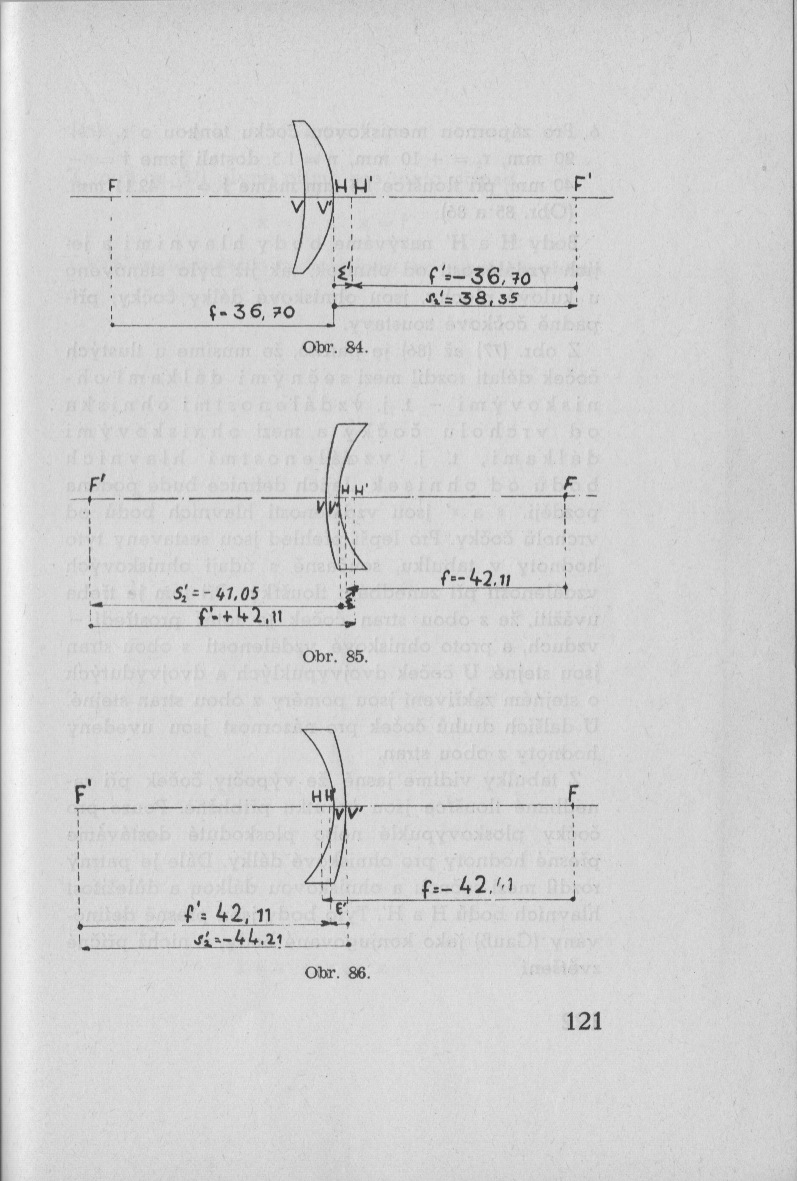 F H H' F'
V V'
ε' f'=-36,70
s₂'=38,35
f=36,70
Obr. 84.
F' H H' F
V V'
f=-42.11
s₂'=-41,05
f'=+42,11
Obr. 85.
F' H H' F
V V'
f'=42,11 ε'
s₂'=-44.21
Obr. 86.
121